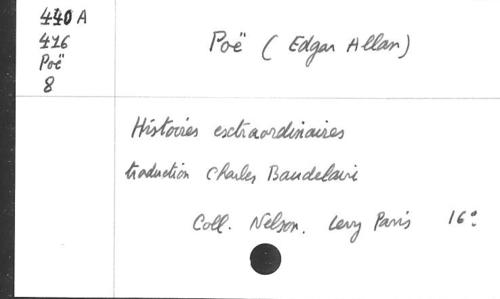 440 A
416
Poë
8
Poë ( Edgar Allan)
Histoires esctraordinaires
traduction Charles Baudelaire
Coll. Nelson. Levy Paris 16°